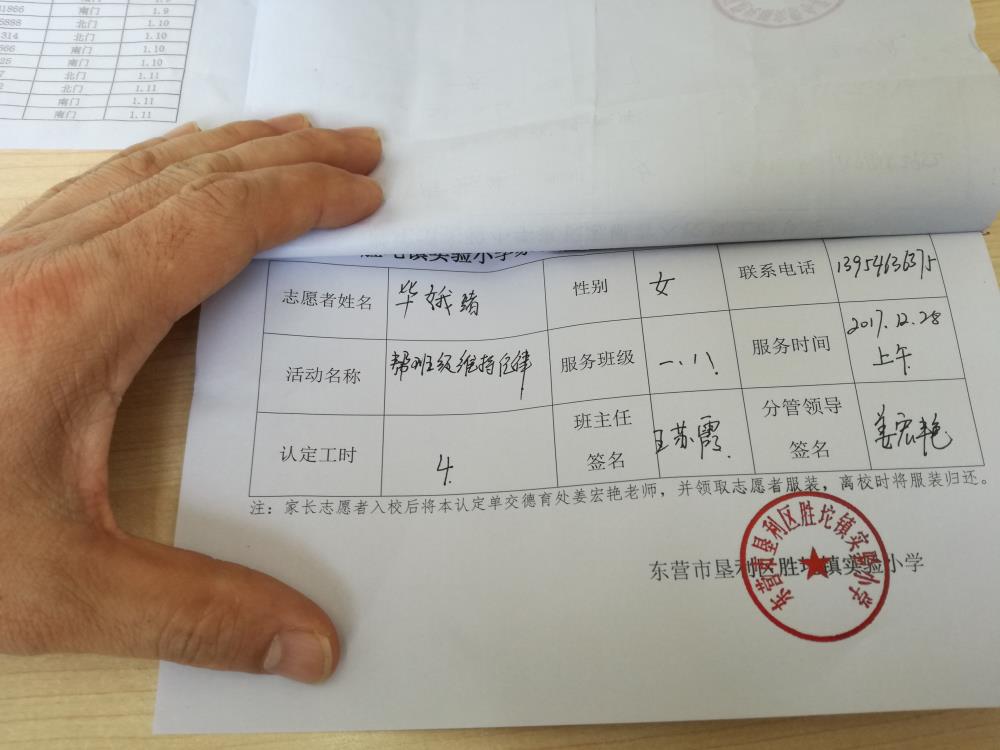 1866 南门 1.9
6888 北门 1.10
314 北门 1.10
666 南门 1.10
25 南门 1.10
7 北门 1.11
2 北门 1.11
南门 1.11
南门 1.11
镇实验小学
志愿者姓名 毕娥 性别 女 联系电话 13954636375
活动名称 帮班级维持纪律 服务班级 一.八 服务时间 2017.12.28
上午
认定工时 4. 班主任 王苏霞 分管领导 姜宏艳
签名 签名
注：家长志愿者入校后将本认定单交德育处姜宏艳老师，并领取志愿者服装，离校时将服装归还。
东营市垦利区胜坨镇实验小学
东营市垦利区胜坨镇实验小学